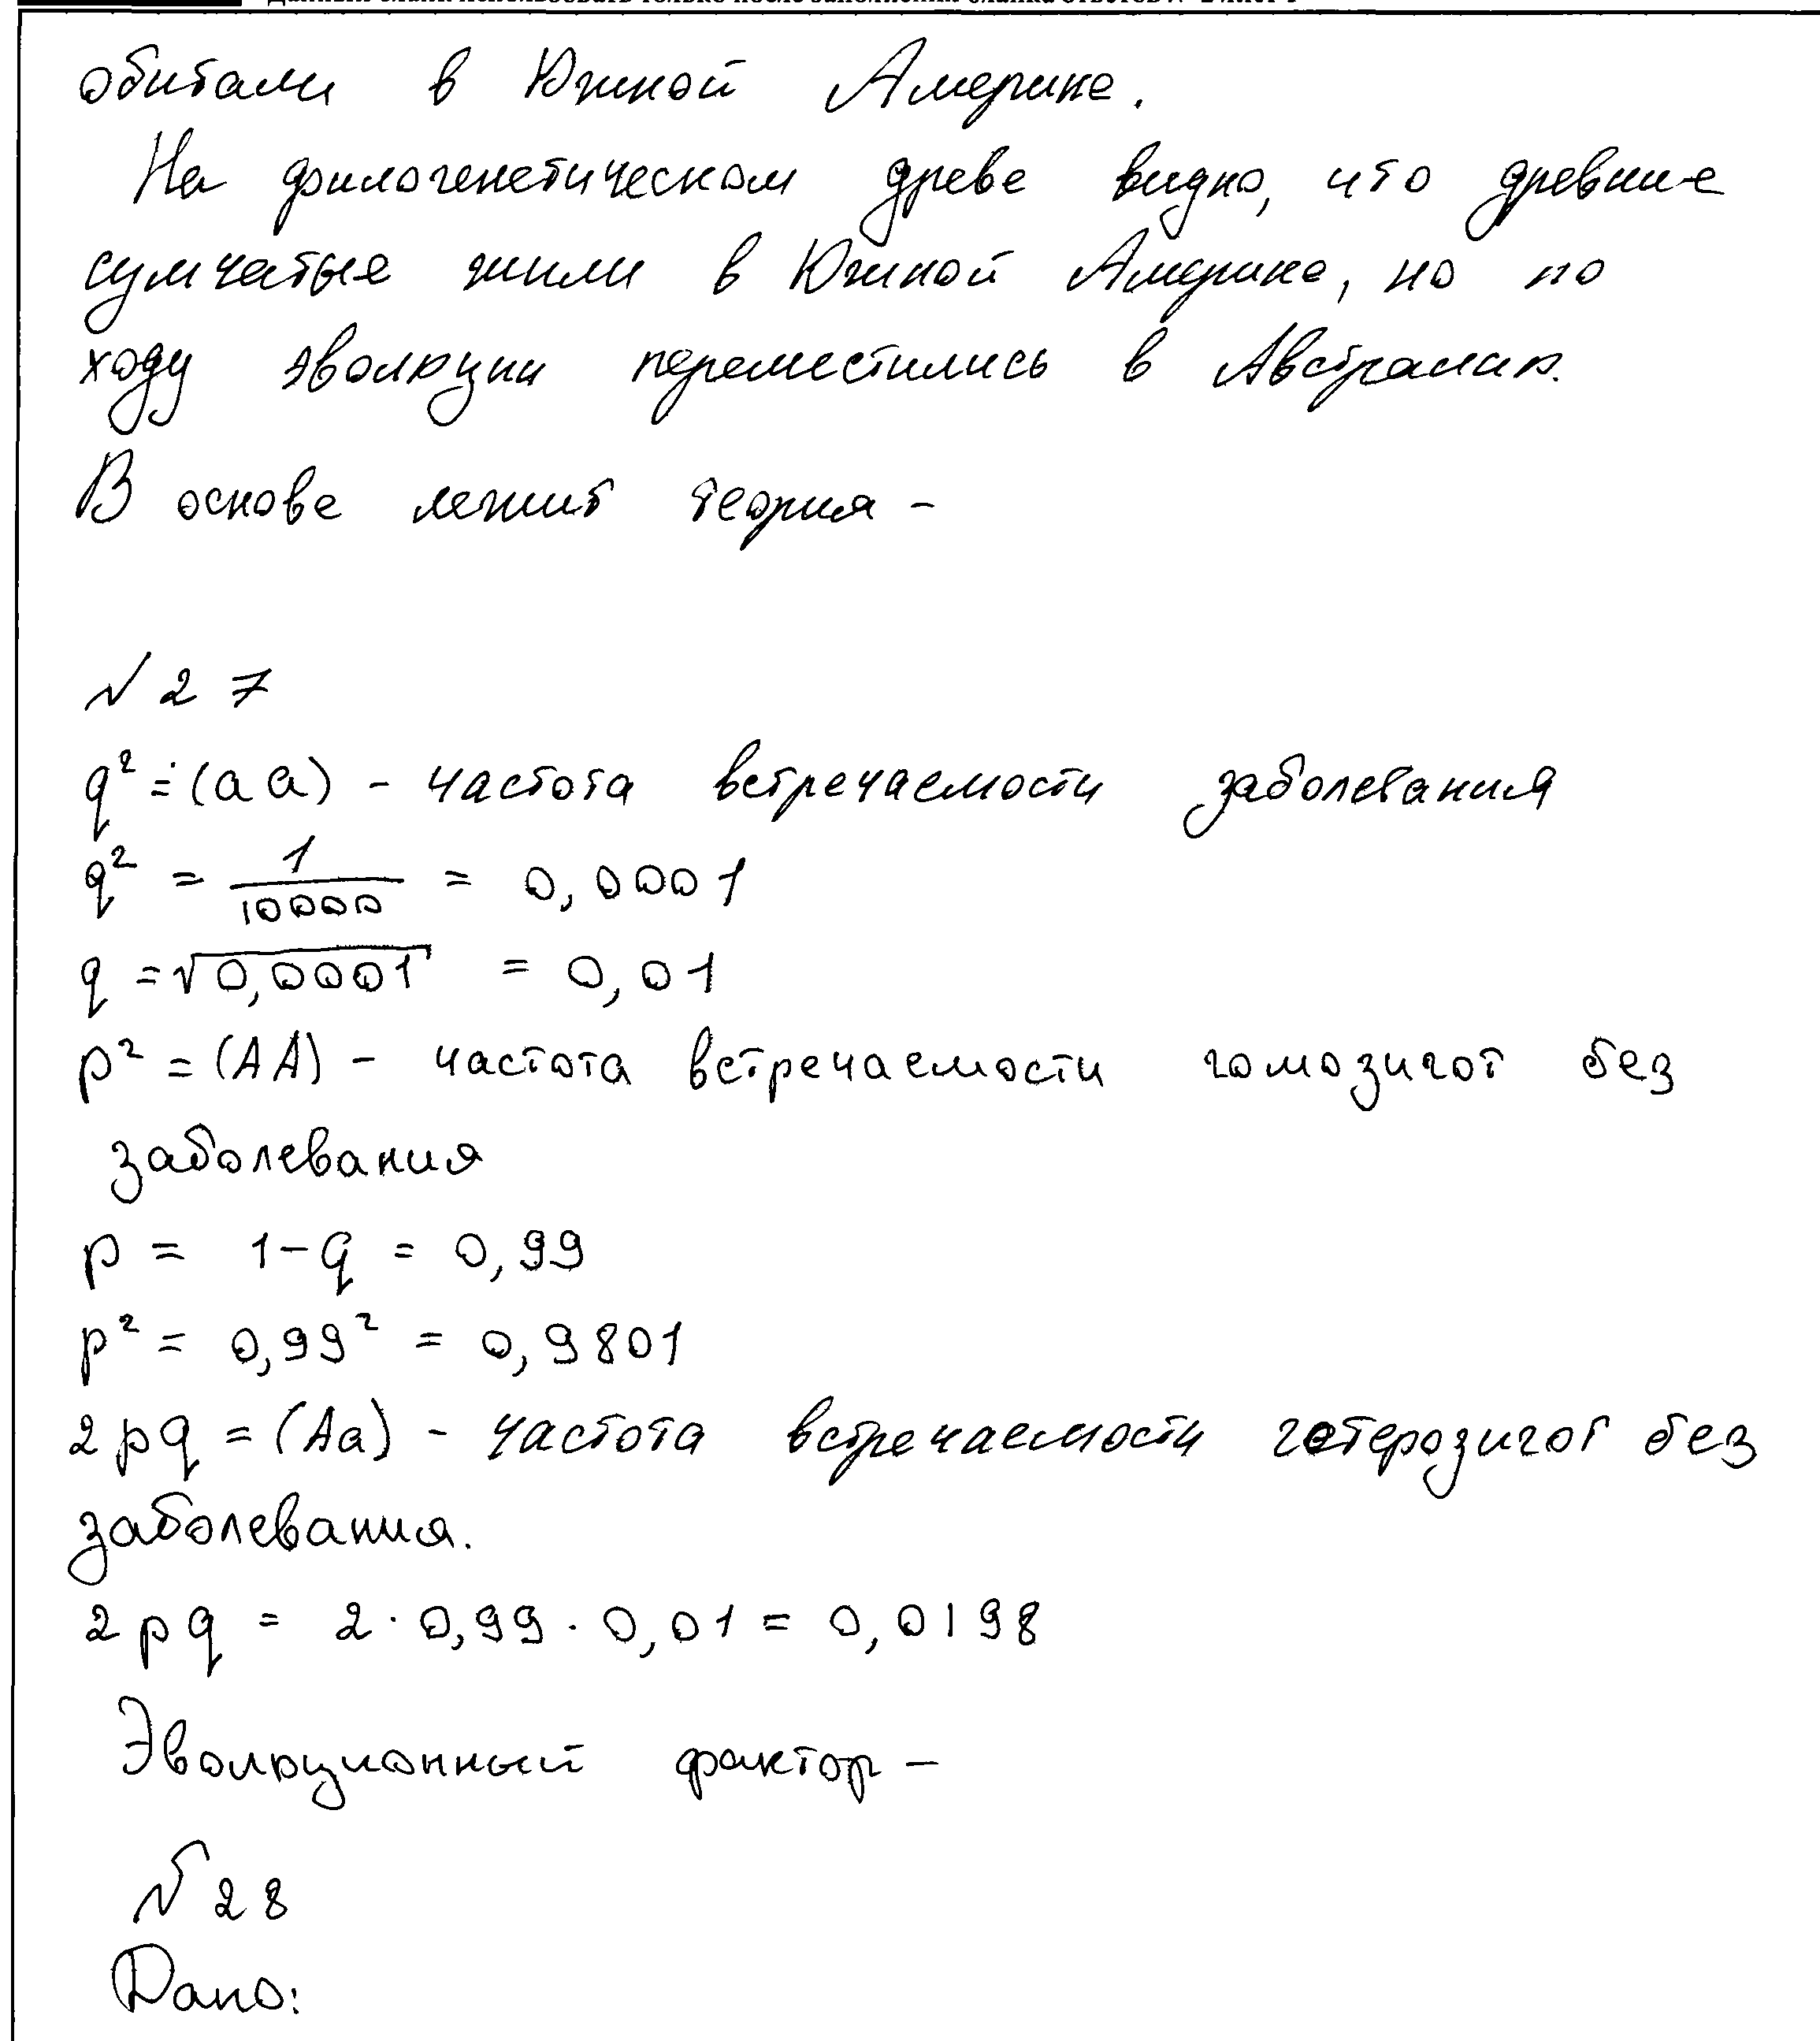 обитали в Южной Америке.
На филогенетическом древе видно, что древние
сумчатые жили в Южной Америке, но по
ходу эволюции переместились в Австралию.
В основе лежит теория -
№ 27
q² = (aa) - частота встречаемости заболевания
q² = 1/10000 = 0,0001
q = √0,0001 = 0,01
p² = (AA) - частота встречаемости гомозигот без
заболевания
p = 1-q = 0,99
p² = 0,99² = 0,9801
2pq = (Aa) - частота встречаемости гетерозигот без
заболевания.
2pq = 2·0,99·0,01 = 0,0198
Эволюционный фактор -
№ 28
Дано: